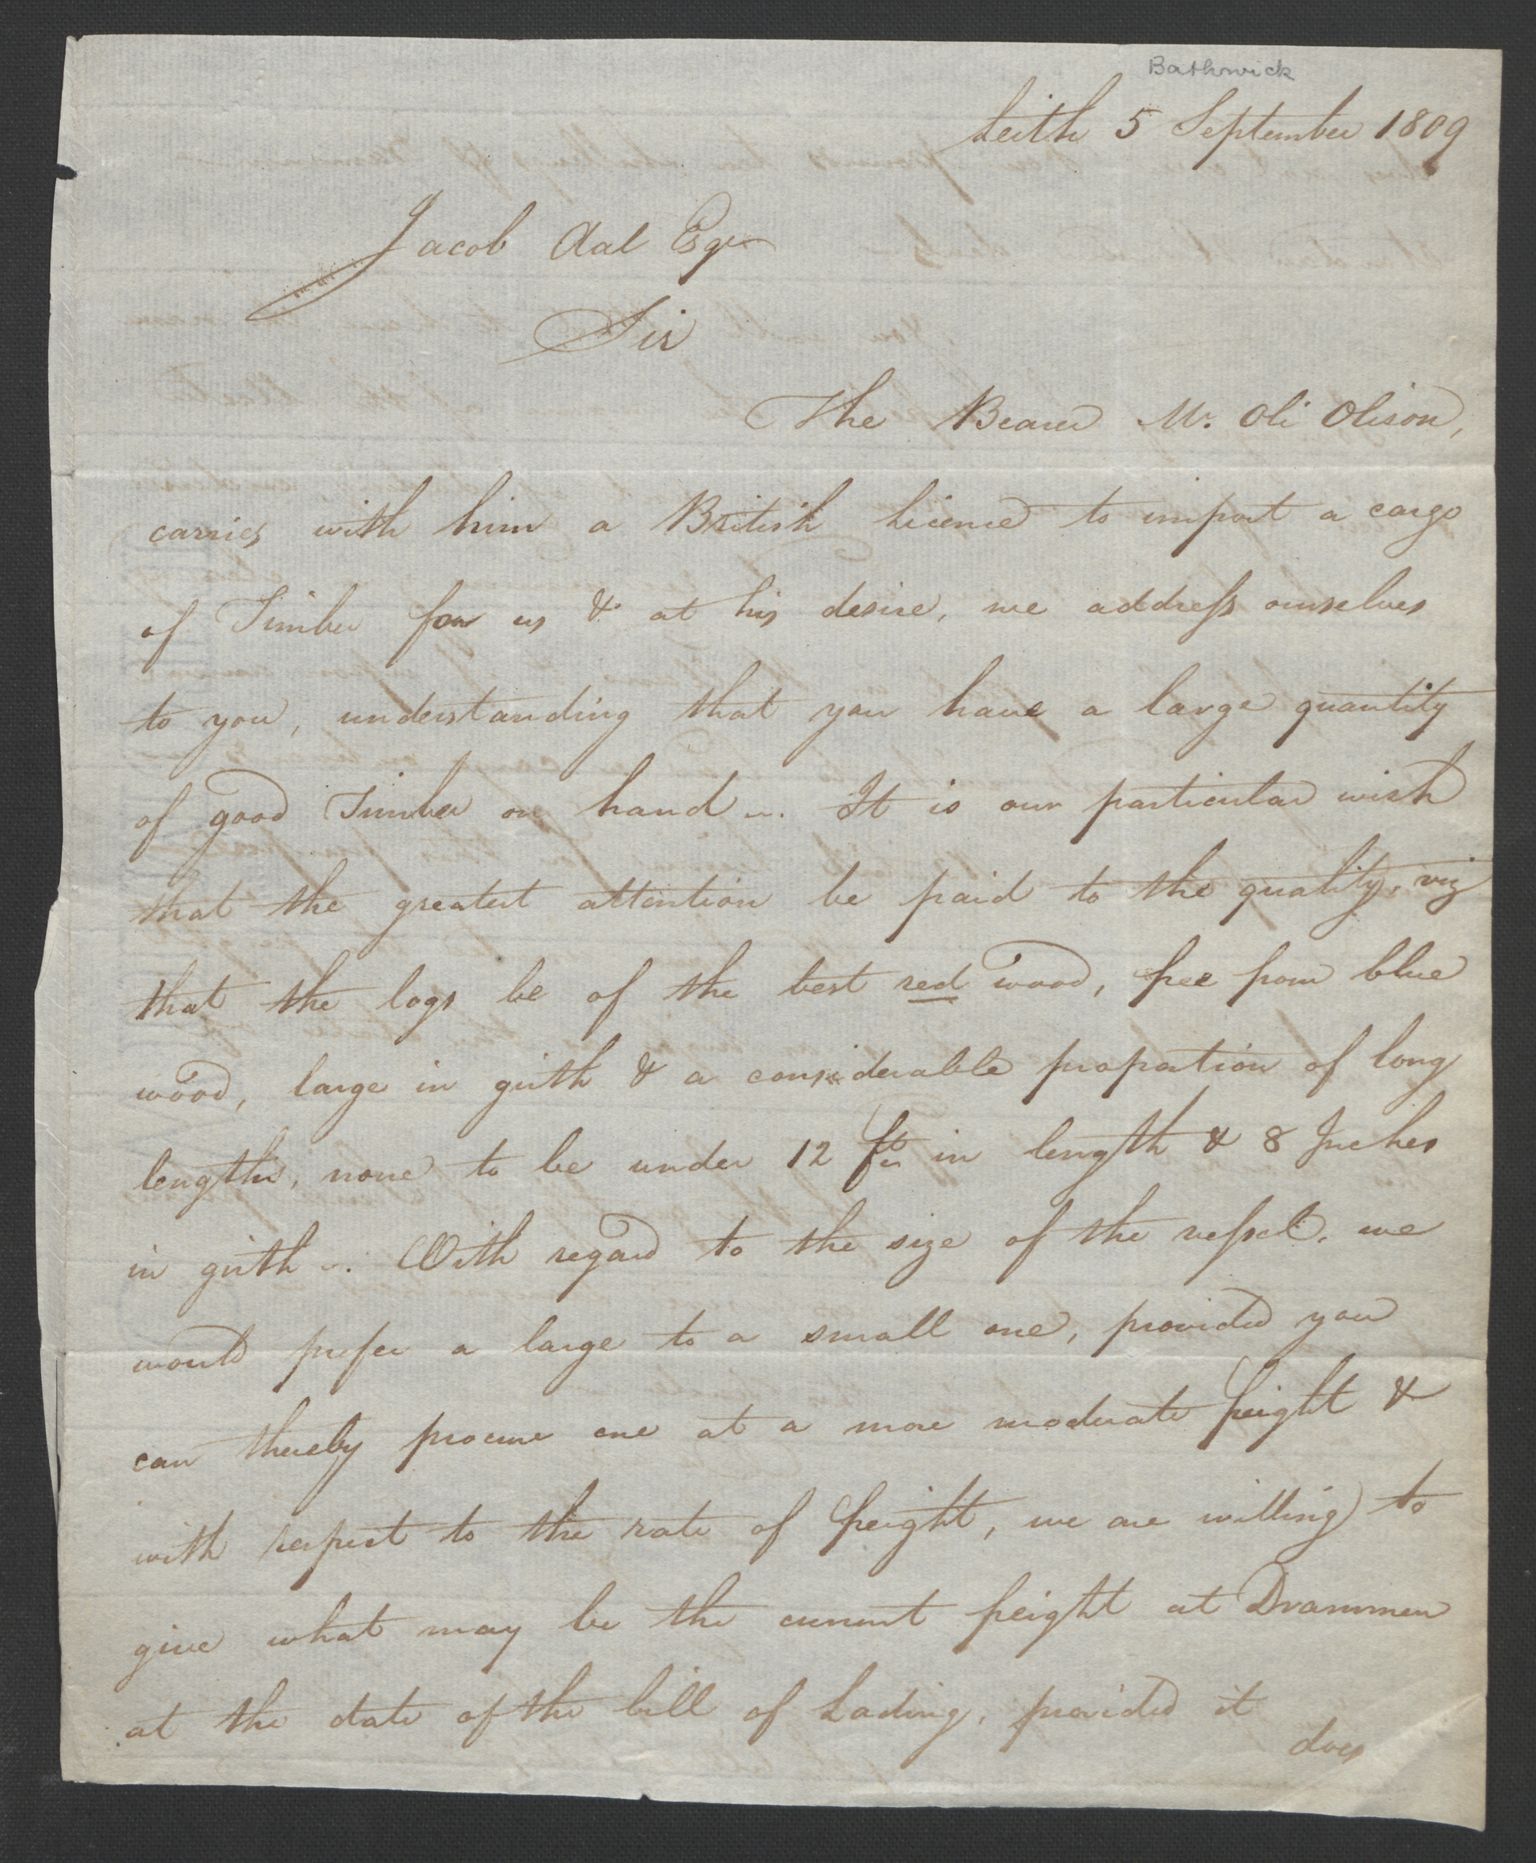 Bathwick
Leith 5 September 1809
Jacob Aal Esqr
Sir
The Bearer Mr. Oli Olison,
carries with him a British Licence to import a cargo
of Timber for us & at his desire, we address ourselves
to you, understanding that you have a large quantity
of good Timber on hand ~. It is our particular wish
that the greatest attention be paid to the quality, viz
that the logs be of the best red wood, free from blue
wood, large in girth & a considerable proportion of long
lengths, none to be under 12 ft in length & 8 Inches
in girth ~. With regard to the size of the vessel, we
would prefer a large to a small one, provided you
can thereby procure one at a more moderate freight &
with respect to the rate of freight, we are willing to
give what may be the current freight at Drammen
at the date of the bill of Lading, provided it
does